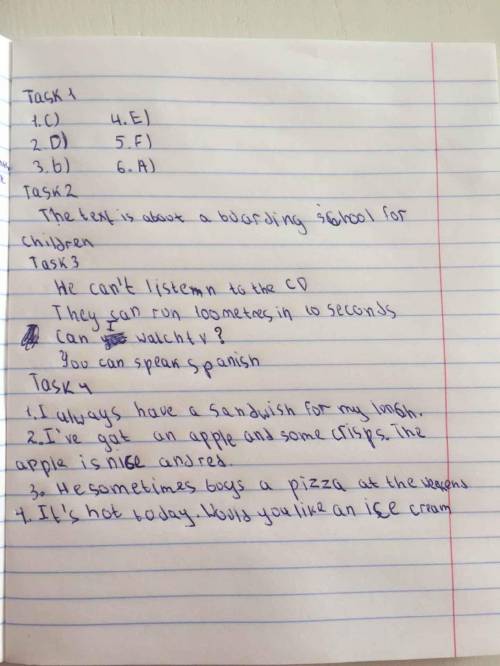 Task 1
1. C) 4. E)
2. D) 5. F)
3. b) 6. A)
Task 2
The text is about a boarding school for
children
Task 3
He can't listen to the CD
They can run 100 metres in 10 seconds
Can I watch tv?
You can speak spanish
Task 4
1. I always have a sandwish for my lunsh.
2. I've got an apple and some crisps. The
apple is nice and red.
3. He sometimes buys a pizza at the weekend
4. It's hot today. Would you like an ice cream